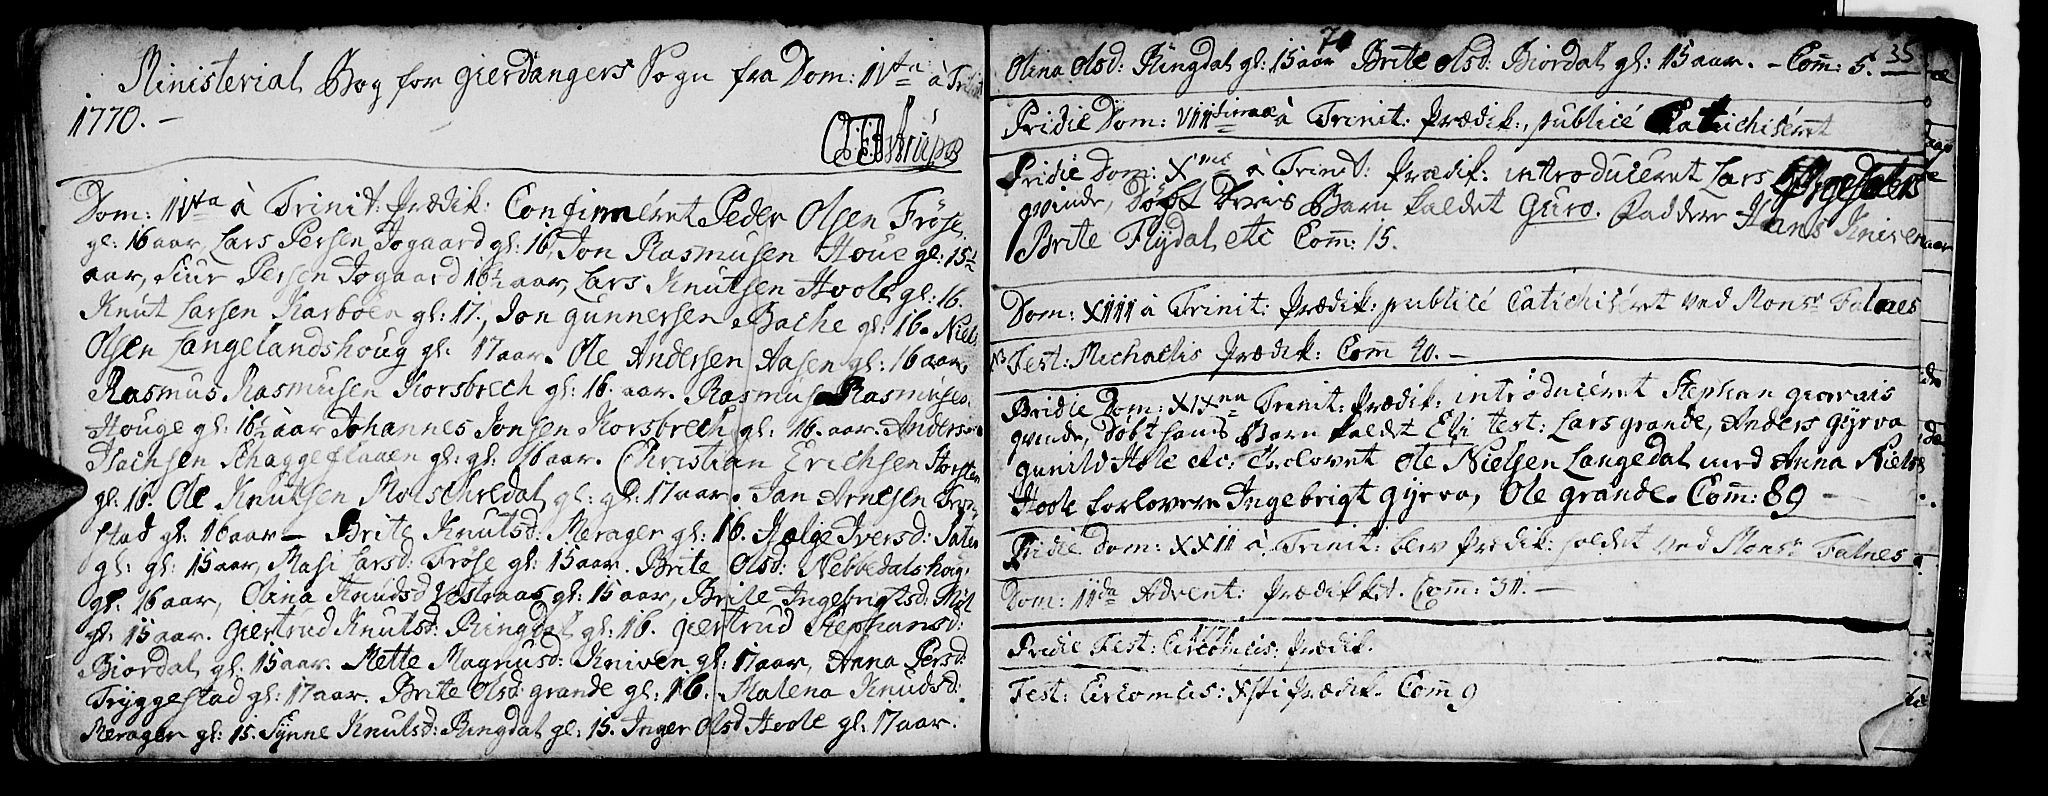 Ministerial Bog for Gierdangers Sogn fra Dom: IVta à Trinit
1770. –
Dom: IVta à Trinit: Prædik: Confirmeret Peder Olsen Fröse
gl: 16 aar, Lars Persen Jogaard gl: 16, Jon Rasmusen Houe gl: 15½
aar, Siur Persen Jogaard 16½ aar, Lars Knutsen Hoole gl: 16.
Knut Larsen Karboen gl: 17., Jon Gunnersen Bache gl: 16. Niels
Olsen Langelandshoug gl: 17 aar. Ole Andersen Aasen gl: 16 aar,
Rasmus Rasmusen Korsbrech gl: 16. aar. Rasmus Rasmusen
Houge gl: 16½ aar Johannes Jonsen Korsbrech gl: 16. aar. Anders
Hachsen Schaggeflaaen gl: gl: 16 aar. Christian Erichsen
gl: 16. Ole Knutsen gl: gl: 17 aar. Jan Arnesen
stad gl: 16 aar – Brite Knutsd: Merager gl: 16. Helge Iversd:
gl: gl: 15 aar, Masi Larsd: Fröse gl: 15 aar. Brite Olsd: Nebbedalshoug
gl: 16 aar, Olina Knudsd Vestraas gl: 15 aar, Brite Ingebrigtsd:
gl: 15 aar. Giertrud Knutsd: Ringdal gl: 16. Giertrud Stephansd:
Biordal gl: 15 aar. Mette Magnusd: Kniven gl: 17 aar, Anna Persd:
Tryggestad gl: 17 aar. Brite Olsd: Grande gl: 16. Malena Knudsd:
Merager gl: 15. Synne Knutsd: Ringdal gl: 15. Inger Olsd Hoole gl: 17 aar.
70
35
Olina Olsd: Ringdal gl: 15 aar Brite Olsd: Biordal gl: 15 aar. – Com: 5.
Pridie Dom: VIII à Trinit: Prædik:, publicé Catichiséret
Pridie Dom: Xme à Trinit: Prædik: introduceret Lars
qvinde, Döbt Deris Barn kaldet Guro. Faddere Hans Kniven
Brite Flydal etc Com: 15.
Dom: XIII à Trinit: Prædik: publicé Catichiséret ved Monsr Falnes
NB Fest: Michaelis Prædik: Com 40. –
Pridie Dom: XIX Trinit: Prædik: introducéret Stephan
qvinde, Döbt hans Barn kaldet Eli test: Lars Grande, Anders Gyrva
Gunild Hole etc: Trolovet Ole Nielsen Langedal med Anna Nielsd
Hoole forlovere Ingebrigt Gyrva, Ole Grande. Com: 89 –
Pridie Dom: XXII à Trinit: blev Prædik: holdet ved Monsr Falnes
Dom: IIda Advent: Prædikket. Com: 51. –
1771
Pridie Fest: Circomcis: Prædik.
Fest: Circomcis: Xsti Prædik. Com 9